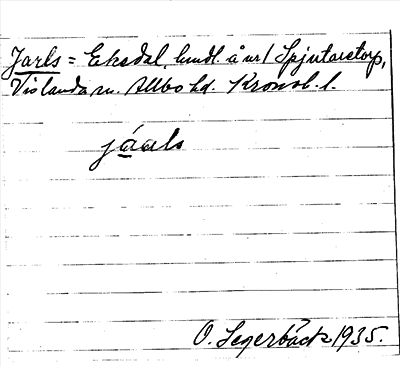 Jarls = Eksdal, hmdl. å nr 1 Spjutaretorp,
Vislanda sn. Allbo hd. Kronob. l.
jáals
O. Segerbäck 1935.